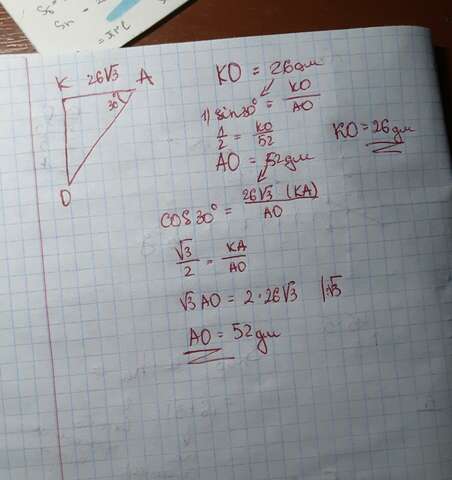 K 26√3 A
30°
O
KO = 26 дм
1) sin30° = KO/AO
1/2 = KO/52
KO = 26 дм
AO = 52 дм
cos30° = 26√3 (KA)/AO
√3/2 = KA/AO
√3 AO = 2 · 26√3 |:√3
AO = 52 дм